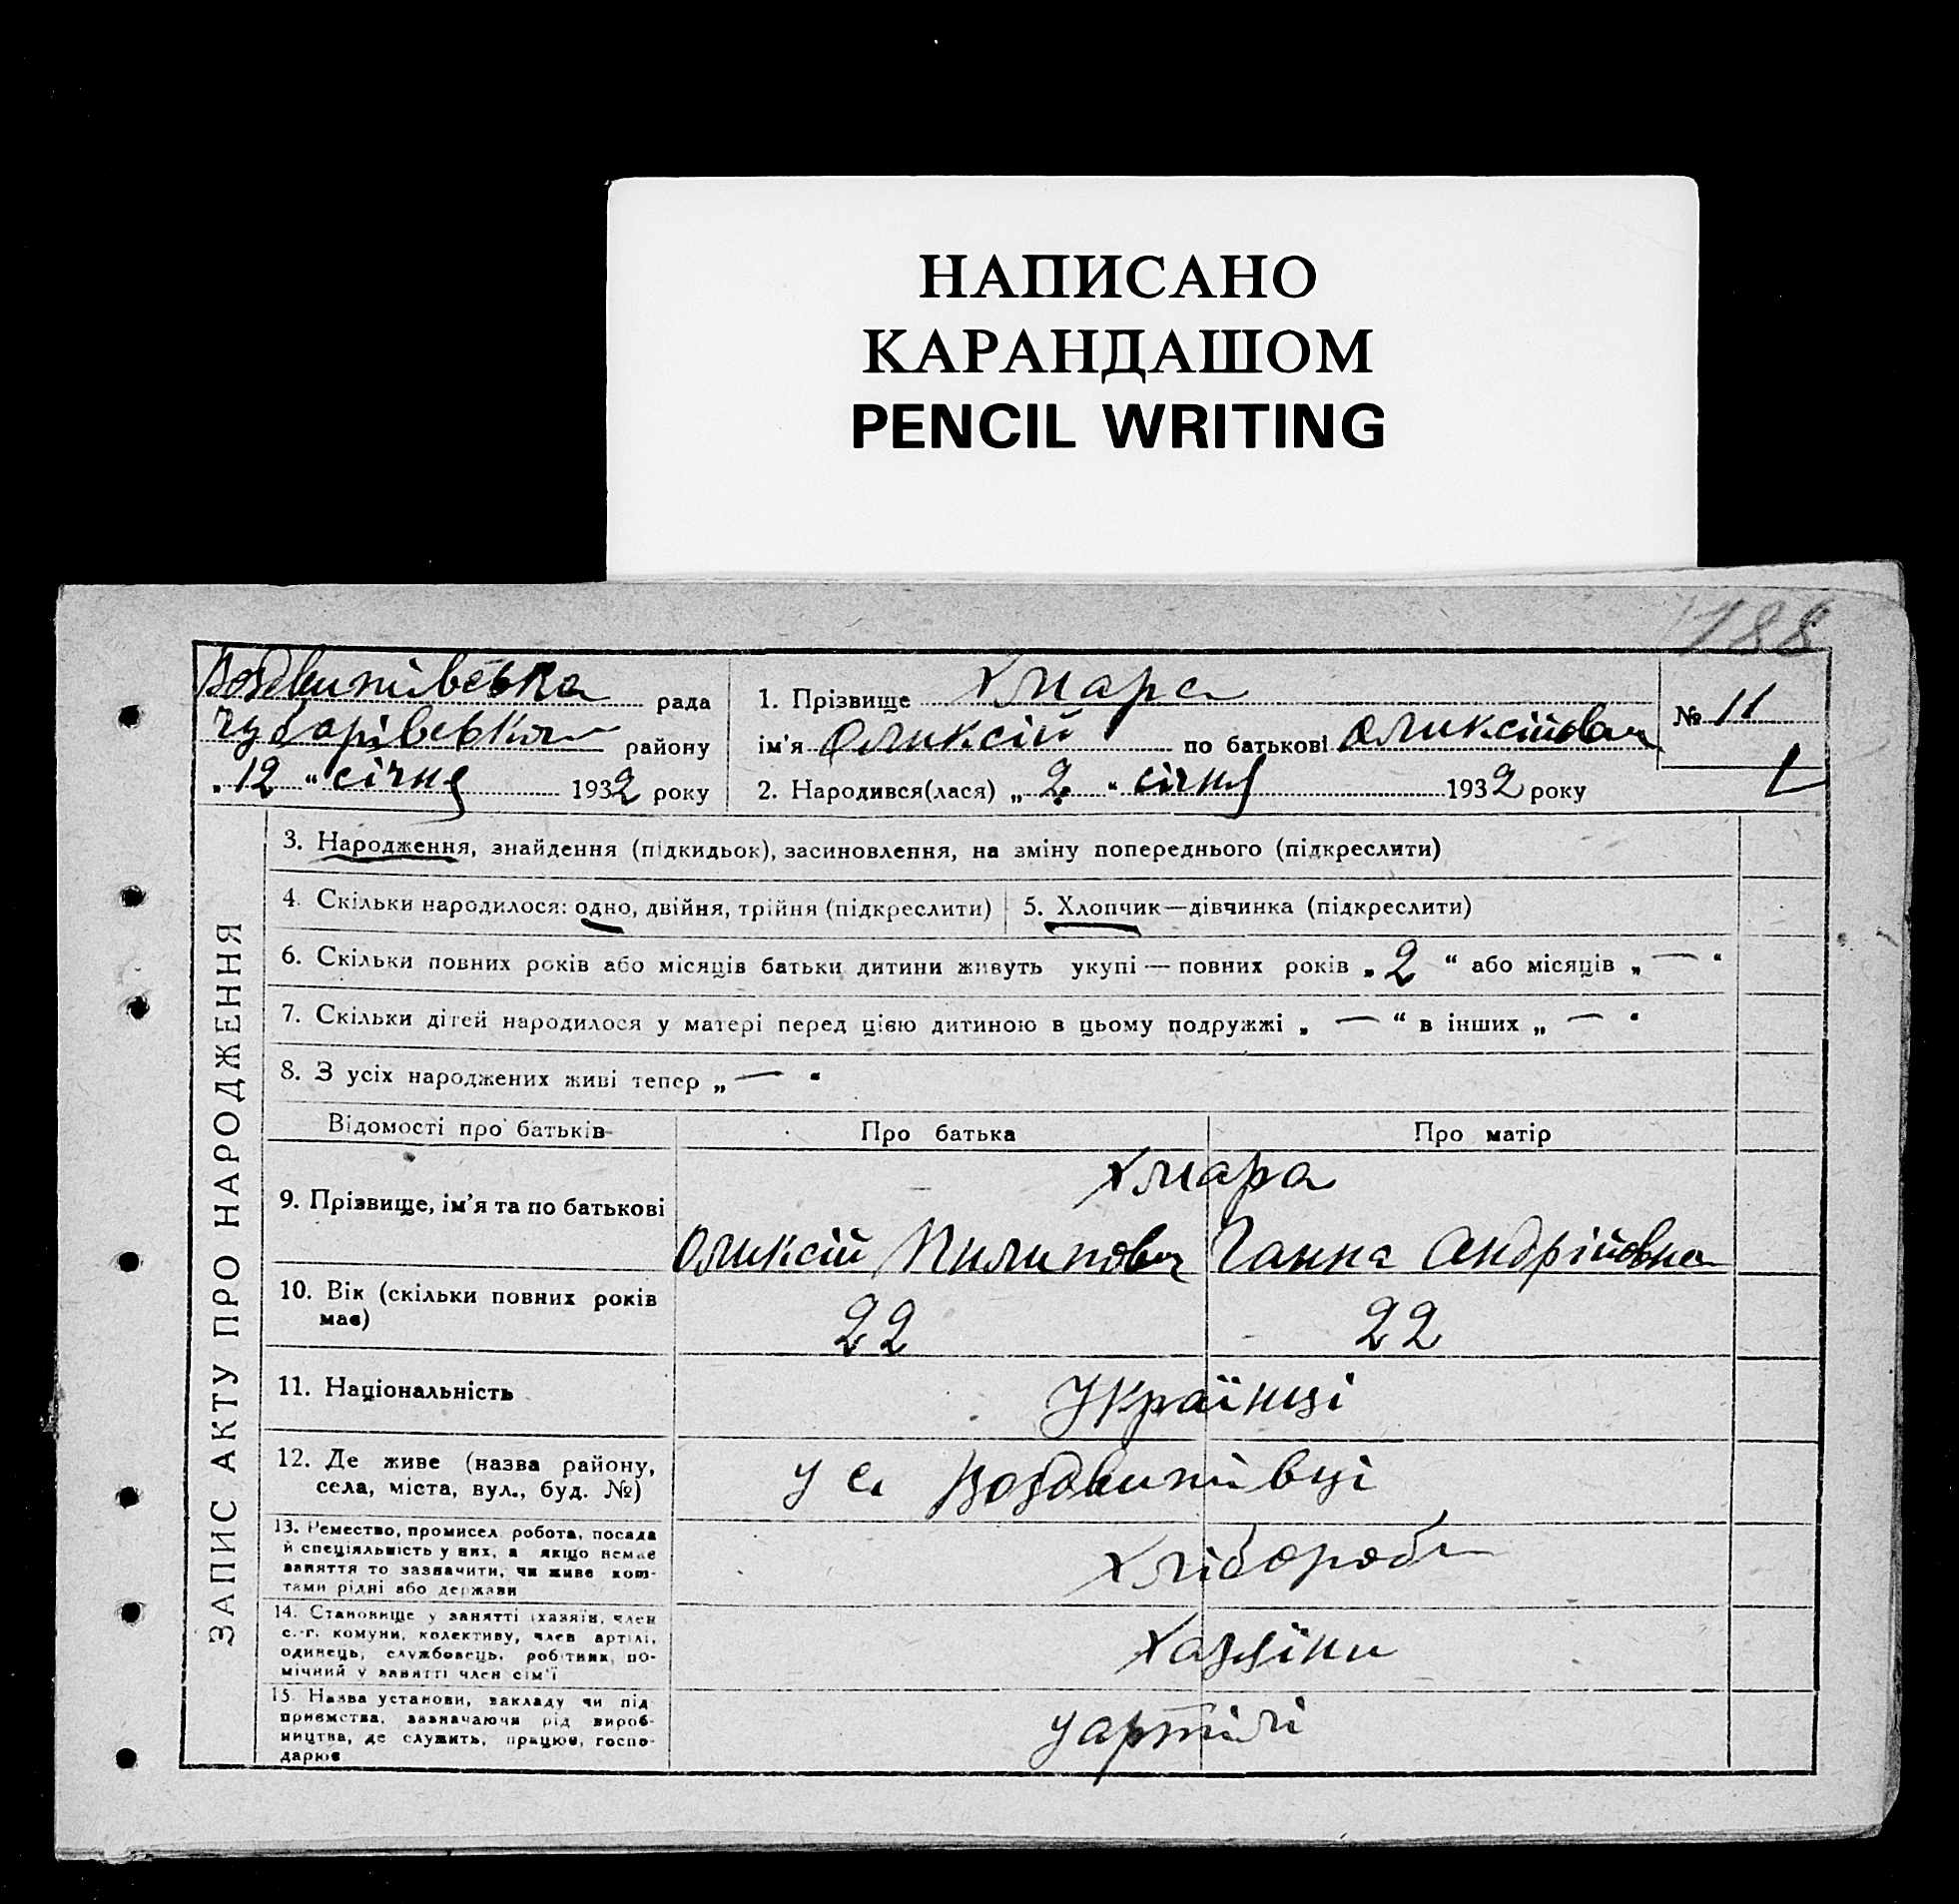 НАПИСАНО
КАРАНДАШОМ
PENCIL WRITING
188
Воздвитівська рада
Чубарівська району
„12“ січня 1932 року
1. Прізвище Хмара
ім'я Оликсій по батькові Оликсійович
2. Народився(лася) „2“ січня 1932 року
№ 11
ЗАПИС АКТУ ПРО НАРОДЖЕННЯ
3. Народження, знайдення (підкидьок), засиновлення, на зміну попереднього (підкреслити)
4. Скільки народилося: одно, двійня, трійня (підкреслити) 5. Хлопчик—дівчинка (підкреслити)
6. Скільки повних років або місяців батьки дитини живуть укупі — повних років „2“ або місяців „—“
7. Скільки дітей народилося у матері перед цією дитиною в цьому подружжі „—“ в інших „—“
8. З усіх народжених живі тепер „—“
Відомості про батьків Про батька Про матір
9. Прізвище, ім'я та по батькові
Хмара
Оликсій Пилипович Ганна Андрійовна
10. Вік (скільки повних років
має)
22 22
11. Національність Українці
12. Де живе (назва району,
села, міста, вул., буд. №)
у с. Воздвитівці
13. Ремество, промисел, робота, посада
й спеціяльність у них, а якщо немає
заняття то зазначити, чи живе кош-
тами рідні або держави
Хлібороб
14. Становище у занятті (хазяїн, член
с.-г. комуни, колективу, член артілі,
одинець, службовець, робітник, по-
мічний у занятті член сім'ї
Хазяїни
15. Назва установи, закладу чи під
приємства, зазначаючи рід вироб-
ництва, де служить, працює, госпо-
дарює
у артілі